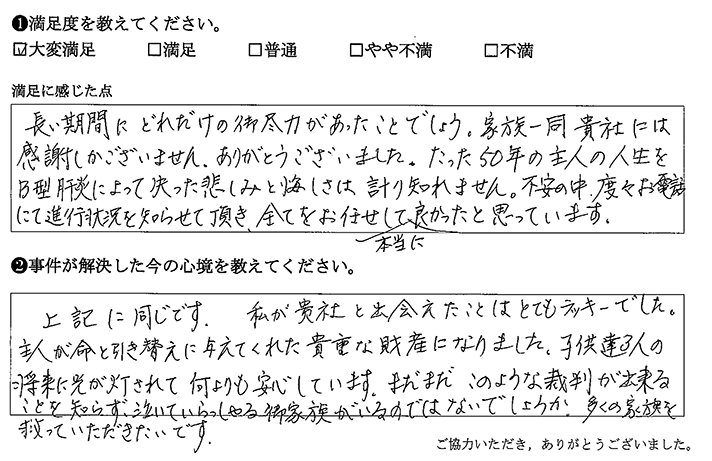 ❶満足度を教えてください。
☑大変満足 □満足 □普通 □やや不満 □不満
満足に感じた点
長い期間に どれだけの御尽力があったことでしょう。家族一同 貴社には
感謝しかございません。ありがとうございました。たった50年の主人の人生を
B型肝炎によって失った悲しみと悔しさは 計り知れません。不安の中、度々お電話
にて進行状況を知らせて頂き、全てをお任せして良かったと思っています。
本当に
❷事件が解決した今の心境を教えてください。
上記に同じです. 私が貴社と出会えたことはとてもラッキーでした。
主人が命と引き替えに与えてくれた貴重な財産になりました。子供達3人の
将来に光が灯されて 何よりも安心しています。まだまだ このような裁判が出来る
ことを知らず、泣いていらっしゃる御家族がいるのではないでしょうか. 多くの家族を
救っていただきたいです.
ご協力いただき，ありがとうございました。